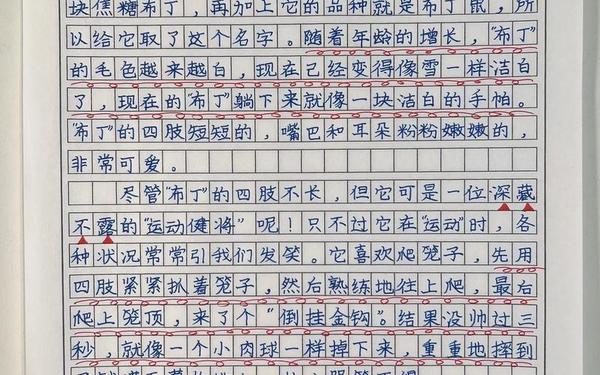 块焦糖布丁，再加上它的品种就是布丁鼠，所
以给它取了这个名字。随着年龄的增长，“布丁”
的毛色越来越白，现在已经变得像雪一样洁白
了，现在的“布丁”躺下来就像一块洁白的手帕。
“布丁”的四肢短短的，嘴巴和耳朵粉粉嫩嫩的，
非常可爱。
尽管“布丁”的四肢不长，但它可是一位深藏
不露的“运动健将”呢！只不过它在“运动”时，各
种状况常常引我们发笑。它喜欢爬笼子，先用
四肢紧紧扒着笼子，然后熟练地往上爬，最后
爬上笼顶，来了个“倒挂金钩”。结果没帅过三
秒，就像一个小肉球一样掉下来，重重地摔到